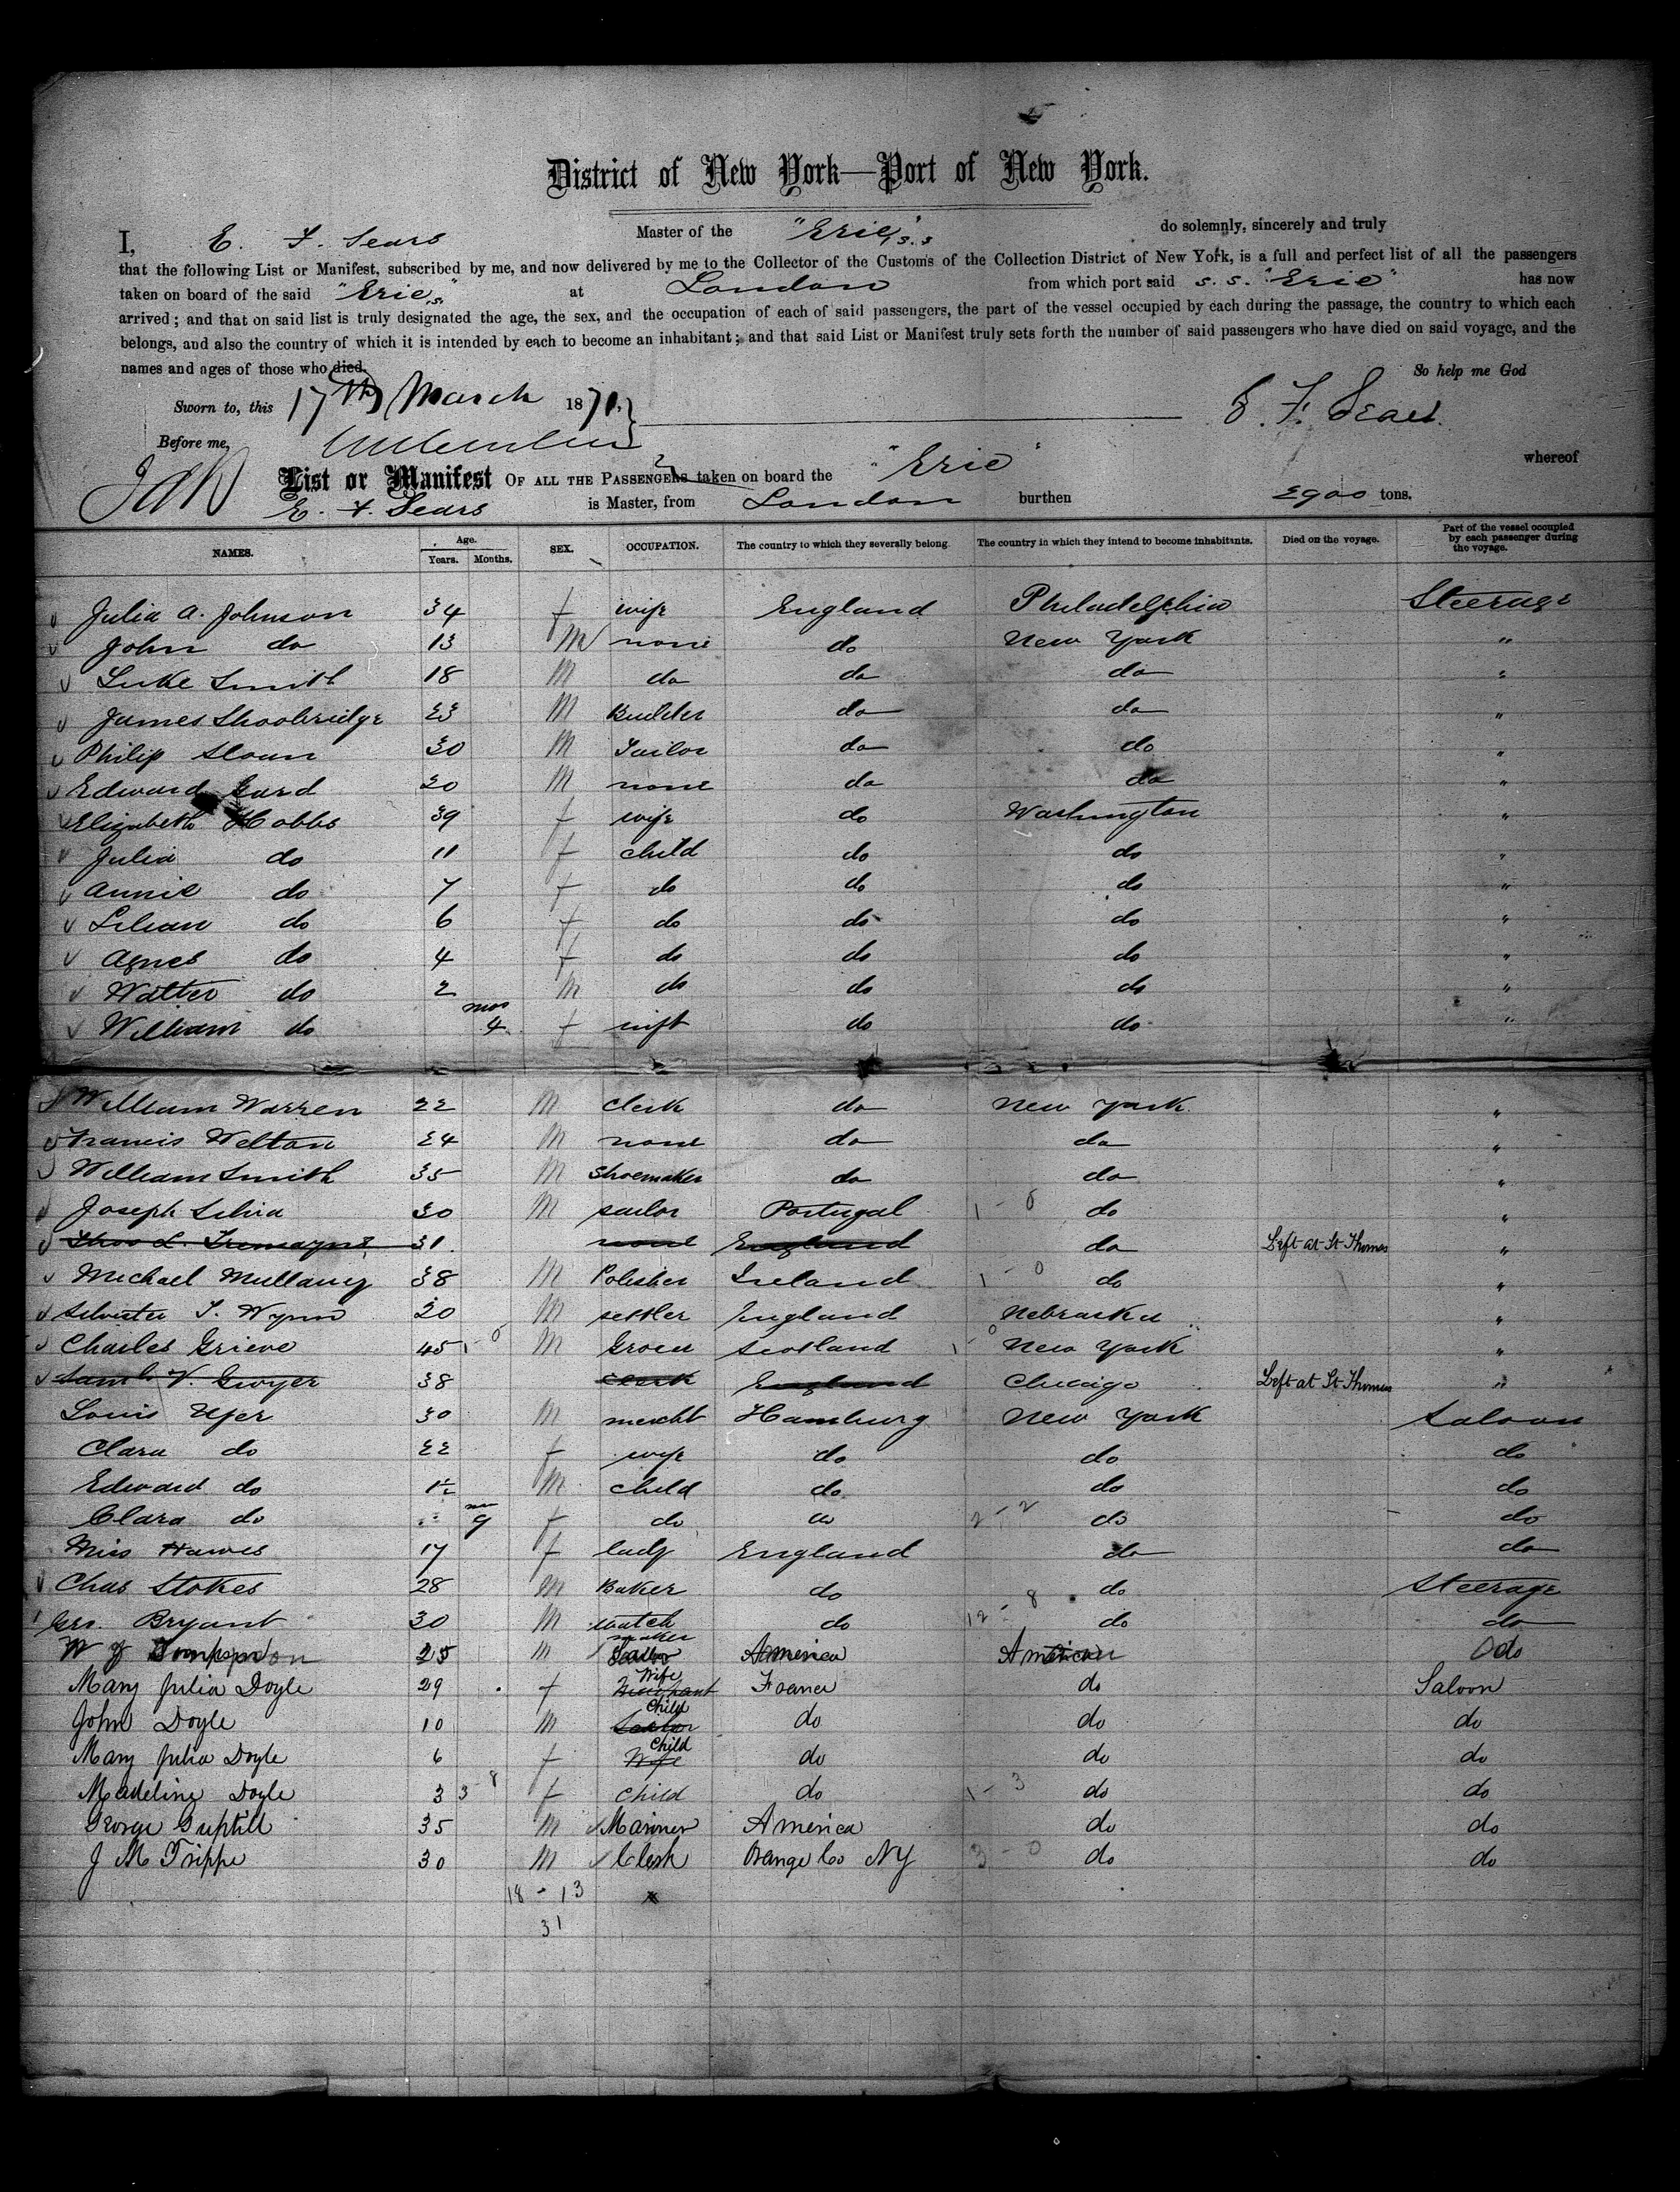 District of New York—Port of New York.
I, E. F. Sears Master of the "Erie" s.s do solemnly, sincerely and truly
that the following List or Manifest, subscribed by me, and now delivered by me to the Collector of the Customs of the Collection District of New York, is a full and perfect list of all the passengers
taken on board of the said "Erie" at London from which port said s. s. "Erie" has now
arrived; and that on said list is truly designated the age, the sex, and the occupation of each of said passengers, the part of the vessel occupied by each during the passage, the country to which each
belongs, and also the country of which it is intended by each to become an inhabitant; and that said List or Manifest truly sets forth the number of said passengers who have died on said voyage, and the
names and ages of those who died. So help me God
Sworn to, this 17th March 1871. E. F. Sears
Before me,
List or Manifest OF ALL THE PASSENGERS taken on board the "Erie" whereof
E. F. Sears is Master, from London burthen tons.
NAMES. Age. Years. Months. SEX. OCCUPATION. The country to which they severally belong. The country in which they intend to become inhabitants. Died on the voyage. Part of the vessel occupied by each passenger during the voyage.
Julia A. Johnson 34 f wife England Philadelphia Steerage
John do 13 M none do New York "
Luke Smith 18 M do do do "
James Shoobridge 23 M Builder do do "
Philip Sloan 30 M Tailor do do "
Edward Gard 20 M none do do "
Elizabeth Hobbs 39 f wife do Washington "
Julia do 11 f child do do "
Annie do 7 f do do do "
Lilian do 6 f do do do "
Agnes do 4 f do do do "
Walter do 2 M do do do "
William do mos 4 f inft do do "
William Warren 22 M Clerk do New York "
Francis Welton 24 M none do do "
William Smith 35 M Shoemaker do do "
Joseph Silvia 30 M sailor Portugal 1 - 0 do "
Thos L. Tremayne 31. none England do Left at St Thomas "
Michael Mullany 38 M Polisher Ireland 1 - 0 do "
Silvester T. Wynn 20 M settler England Nebraska "
Charles Grieve 45 1 - 0 M Grocer Scotland 1 - 0 New York "
Saml V. Gwyer 38 Clerk England Chicago Left at St Thomas "
Louis Ufer 30 M mercht Hamburg New York Saloon
Clara do 22 f wife do do do
Edward do 1½ M child do do do
Clara do 9 f do do 2 - 2 do do
Miss Hawes 17 f lady England do do
Chas Stokes 28 M Baker do do Steerage
Geo. Bryant 30 M watch maker do 12 - 8 do do
25 m America American do
Mary Julia Doyle 29 f Wife France do Saloon
John Doyle 10 m Child do do do
Mary Julia Doyle 6 f Child Wife do do do
Madeline Doyle 3 3 - 8 f Child do 1 - 3 do do
George Guptill 35 M Mariner America do do
J M Trippe 30 M Clerk Orange Co NY 3 - 0 do do
18 - 13
31